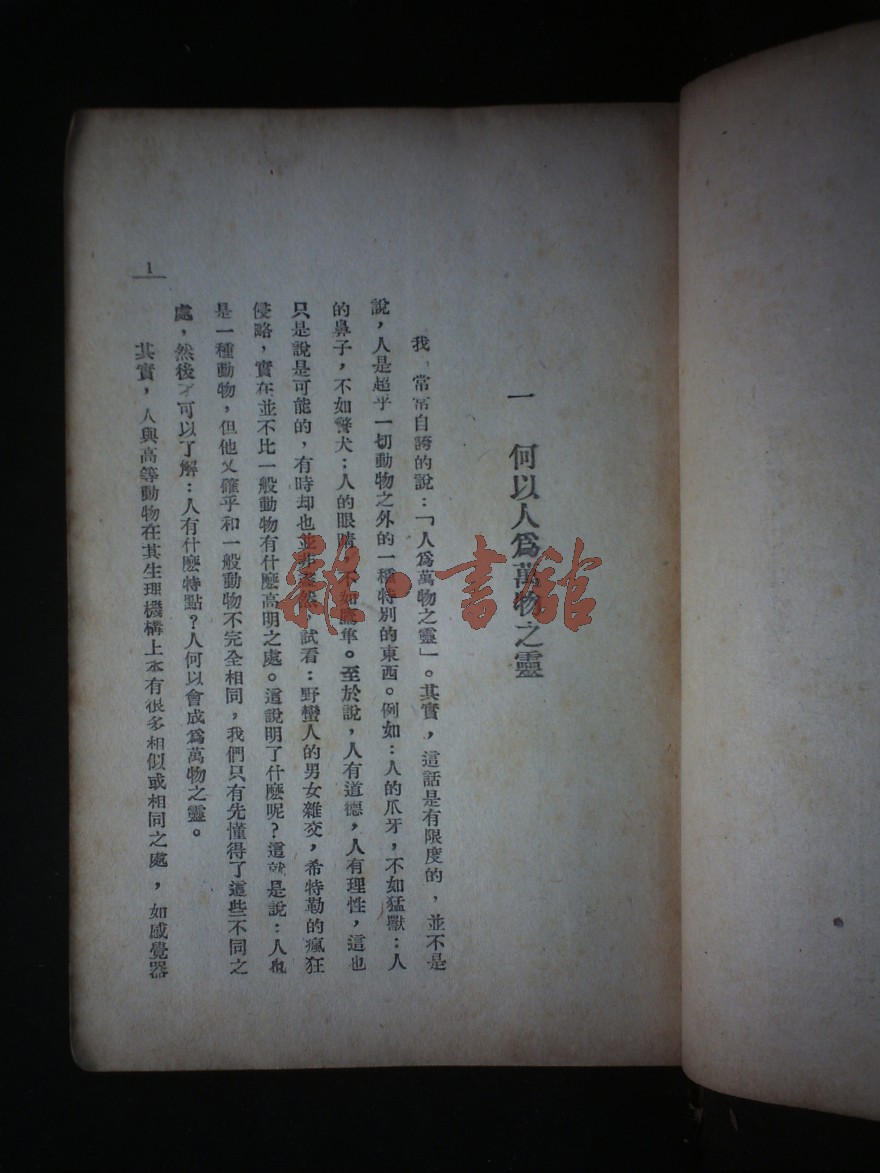 一　何以人爲萬物之靈
我，常常自誇的說：「人爲萬物之靈」。其實，這話是有限度的，並不是
說，人是超乎一切動物之外的一種特別的東西。例如：人的爪牙，不如猛獸：人
的鼻子，不如警犬：人的眼睛，不如鷹隼。至於說，人有道德，人有理性，這也
只是說是可能的，有時却也並非盡然，試看：野蠻人的男女雜交，希特勒的瘋狂
侵略，實在並不比一般動物有什麽高明之處。這說明了什麽呢？這就是說：人也
是一種動物，但他又確乎和一般動物不完全相同，我們只有先懂得了這些不同之
處，然後才可以了解：人有什麽特點？人何以會成爲萬物之靈。
其實，人與高等動物在其生理機構上本有很多相似或相同之處，如感覺器
1
雜·書館